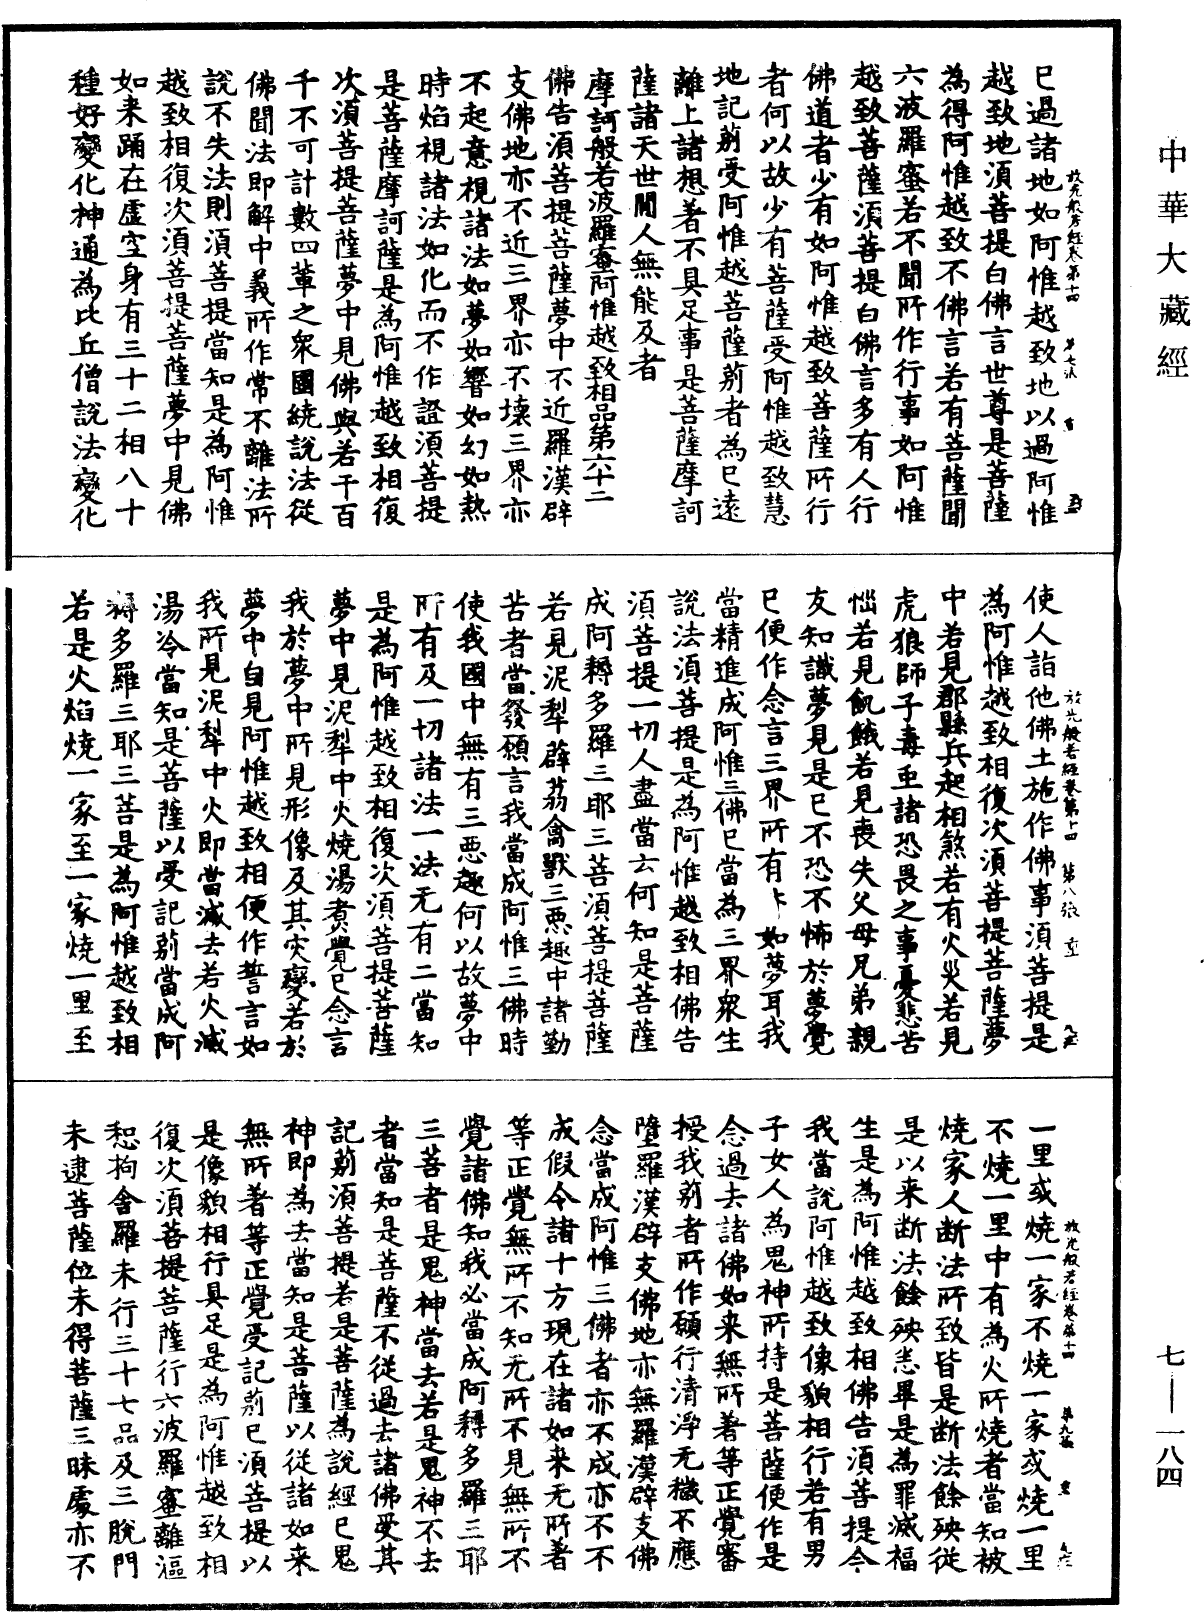 中華大藏經
已過諸地如阿惟越致地以過阿惟
放光般若經卷第十四 第七張
越致地須菩提白佛言世尊是菩薩
為得阿惟越致不佛言若有菩薩聞
六波羅蜜若不聞所作行事如阿惟
越致菩薩須菩提白佛言多有人行
佛道者少有如阿惟越致菩薩所行
者何以故少有菩薩受阿惟越致慧
地記莂受阿惟越菩薩莂者為已遠
離上諸想著不具足事是菩薩摩訶
薩諸天世間人無能及者
摩訶般若波羅蜜阿惟越致相品第六十二
佛告須菩提菩薩夢中不近羅漢辟
支佛地亦不近三界亦不壞三界亦
不起意視諸法如夢如響如幻如熱
時焰視諸法如化而不作證須菩提
是菩薩摩訶薩是為阿惟越致相復
次須菩提菩薩夢中見佛與若干百
千不可計數四輩之眾圍繞說法從
佛聞法即解中義所作常不離法所
說不失法則須菩提當知是為阿惟
越致相復次須菩提菩薩夢中見佛
如来踊在虛空身有三十二相八十
種好變化神通為比丘僧說法變化
使人詣他佛土施作佛事須菩提是
放光般若經卷第十四 第八張
為阿惟越致相復次須菩提菩薩夢
中若見郡縣兵起相煞若有火災若見
虎狼師子毒虫諸恐畏之事憂悲苦
惱若見飢餓若見喪失父母兄弟親
友知識夢見是已不恐不怖於夢覺
已便作念言三界所有如夢耳我
當精進成阿惟三佛已當為三界眾生
說法須菩提是為阿惟越致相佛告
須菩提一切人盡當云何知是菩薩
成阿耨多羅三耶三菩須菩提菩薩
若見泥犁薜荔禽獸三惡趣中諸勤
苦者當發願言我當成阿惟三佛時
使我國中無有三惡趣何以故夢中
所有及一切諸法一法无有二當知
是為阿惟越致相復次須菩提菩薩
夢中見泥犁中火燒湯煮覺已念言
我於夢中所見形像及其灾變若於
夢中自見阿惟越致相便作誓言如
我所見泥犁中火即當滅去若火滅
湯冷當知是菩薩以受記莂當成阿
耨多羅三耶三菩是為阿惟越致相
若是火焰燒一家至一家燒一里至
一里或燒一家不燒一家或燒一里
放光般若經卷第十四 第九張
不燒一里中有為火所燒者當知被
燒家人断法所致皆是断法餘殃從
是以来断法餘殃悉畢是為罪滅福
生是為阿惟越致相佛告須菩提今
我當說阿惟越致像貌相行若有男
子女人為鬼神所持是菩薩便作是
念過去諸佛如来無所著等正覺審
授我莂者所作願行清淨无穢不應
墮羅漢辟支佛地亦無羅漢辟支佛
念當成阿惟三佛者亦不成亦不不
成假令諸十方現在諸如来无所著
等正覺無所不知无所不見無所不
覺諸佛知我必當成阿耨多羅三耶
三菩者是鬼神當去若是鬼神不去
者當知是菩薩不從過去諸佛受其
記莂須菩提若是菩薩為說經已鬼
神即為去當知是菩薩以從諸如来
無所著等正覺受記莂已須菩提以
是像貌相行具足是為阿惟越致相
復次須菩提菩薩行六波羅蜜離漚
惒拘舍羅未行三十七品及三脫門
未逮菩薩位未得菩薩三昧處亦不
七—一八四